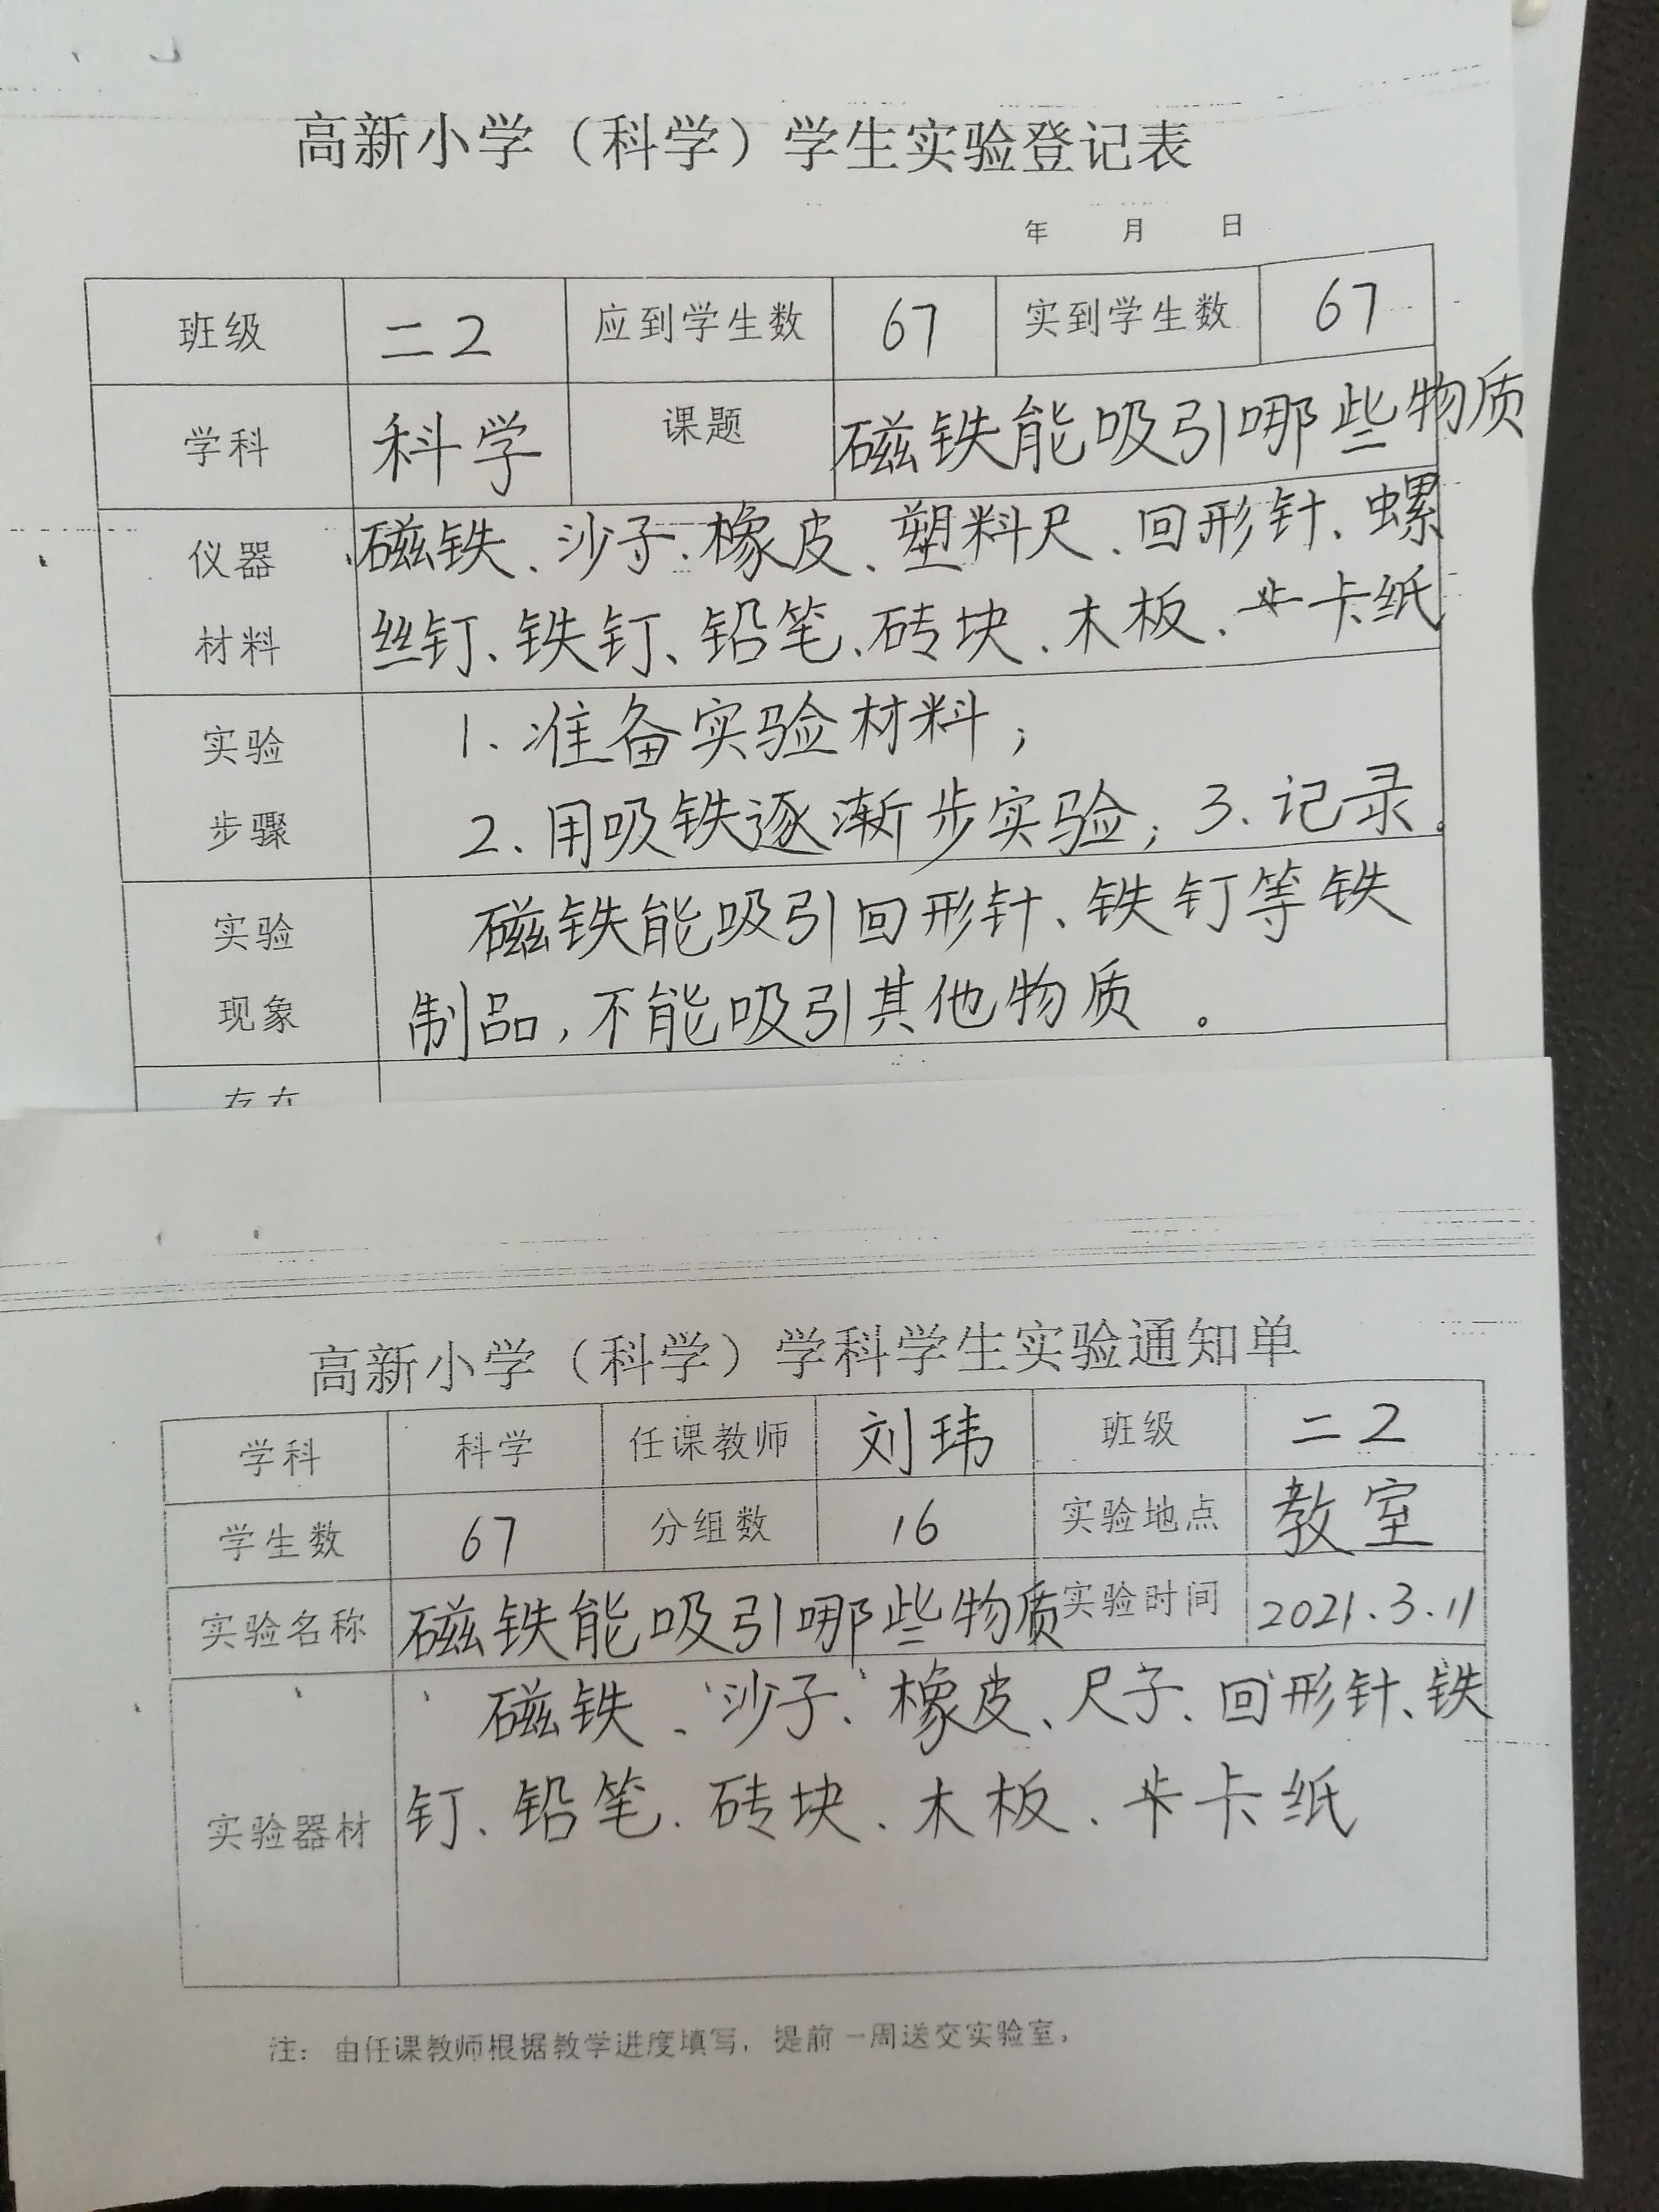 高新小学（科学）学生实验登记表
年 月 日
班级 二2 应到学生数 67 实到学生数 67
学科 科学 课题 磁铁能吸引哪些物质
仪器 磁铁、沙子、橡皮、塑料尺、回形针、螺
材料 丝钉、铁钉、铅笔、砖块、木板、卡纸
实验 1、准备实验材料；
步骤 2、用吸铁逐渐步实验；3、记录。
实验 磁铁能吸引回形针、铁钉等铁
现象 制品，不能吸引其他物质。
存在
高新小学（科学）学科学生实验通知单
学科 科学 任课教师 刘玮 班级 二2
学生数 67 分组数 16 实验地点 教室
实验名称 磁铁能吸引哪些物质 实验时间 2021.3.11
磁铁、沙子、橡皮、尺子、回形针、铁
实验器材 钉、铅笔、砖块、木板、卡纸
注：由任课教师根据教学进度填写，提前一周送交实验室。